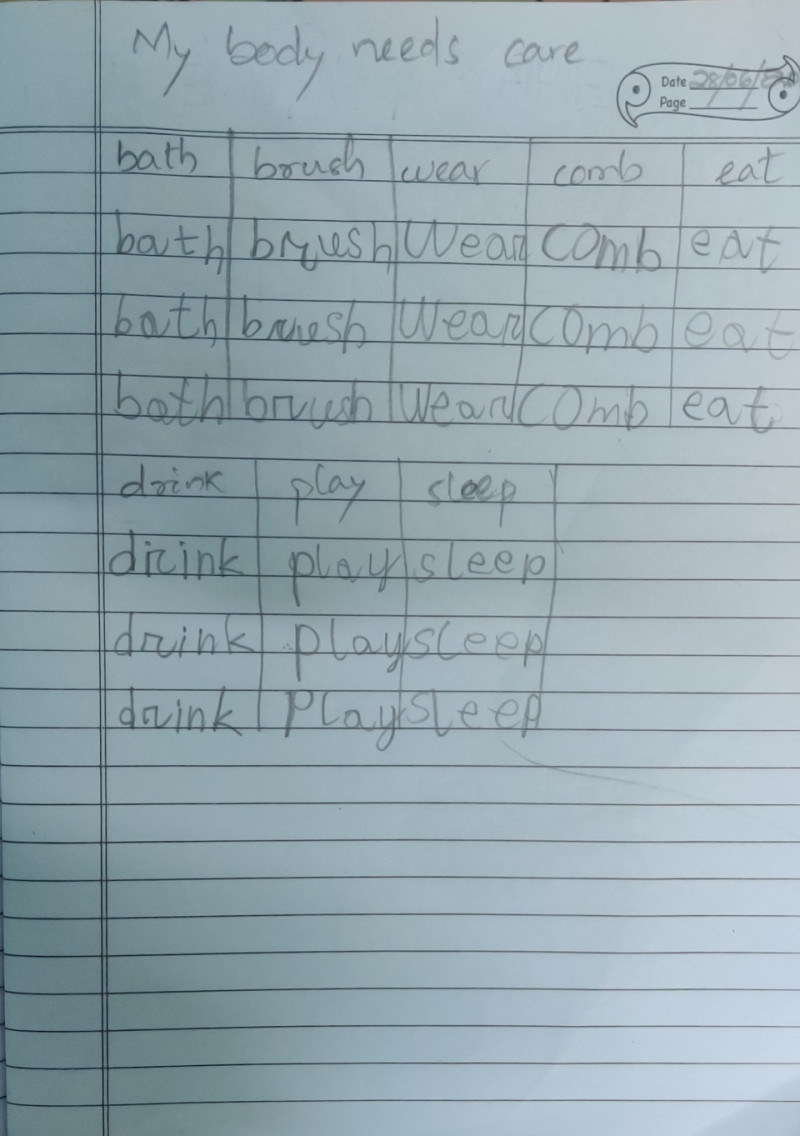 My body needs care
Date 28/06/
Page
bath brush wear comb eat
bath brush Wear COmb eat
bath brush Wear COmb eat
bath brush Wear COmb eat
drink play sleep
drink play sleep
drink play sleep
drink Play sleep